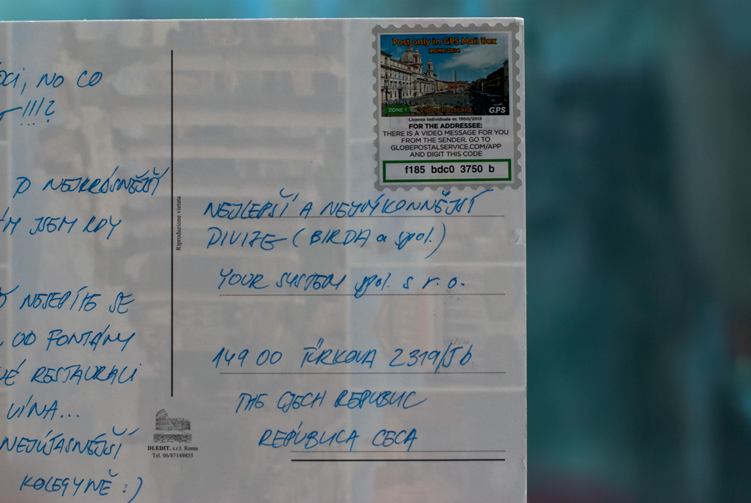 OCI, NO CO
!!!?
O NEJKRÁSNĚJŠÍ
M JSEM KDY
NESEPÍTE SE
OD FONTÁNY
É RESTAURACI
VÍNA...
NEJÚŽASNĚJŠÍ
KOLEGYNĚ :)
Riproduzione vietata
DI.EDIT. s.r.l. Roma
Tel. 06/87149835
Post only in GPS Mail Box
ZONE 1
GPS
Licenza Individuale nr. 1900/2013
FOR THE ADDRESSEE:
THERE IS A VIDEO MESSAGE FOR YOU
FROM THE SENDER. GO TO
GLOBEPOSTALSERVICE.COM/APP
AND DIGIT THIS CODE
f185 bdc0 3750 b
NEJLEPŠÍ A NEJVÝKONNĚJŠÍ
DIVIZE (BIRDA a spol.)
YOUR SYSTEM spol. s r.o.
149 00 TÜRKOVA 2319/5b
THE CZECH REPUBLIC
REPÚBLICA CECA